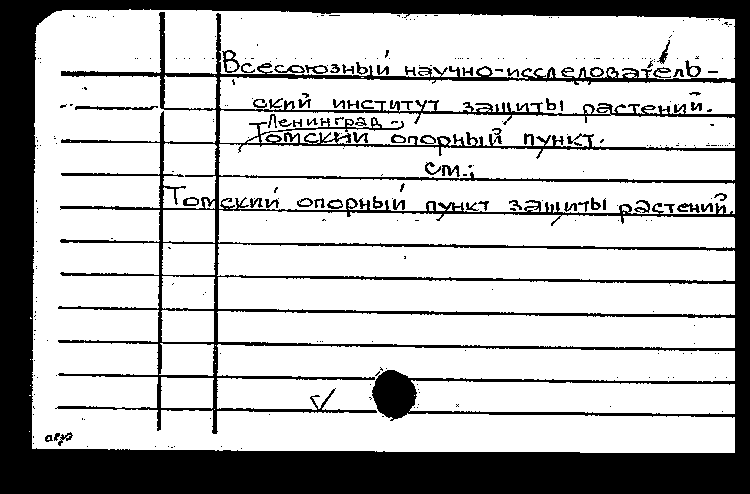 Всесоюзный научно-исследователь-
ский институт защиты растений.
Ленинград
Томский опорный пункт.
см.:
Томский опорный пункт защиты растений.